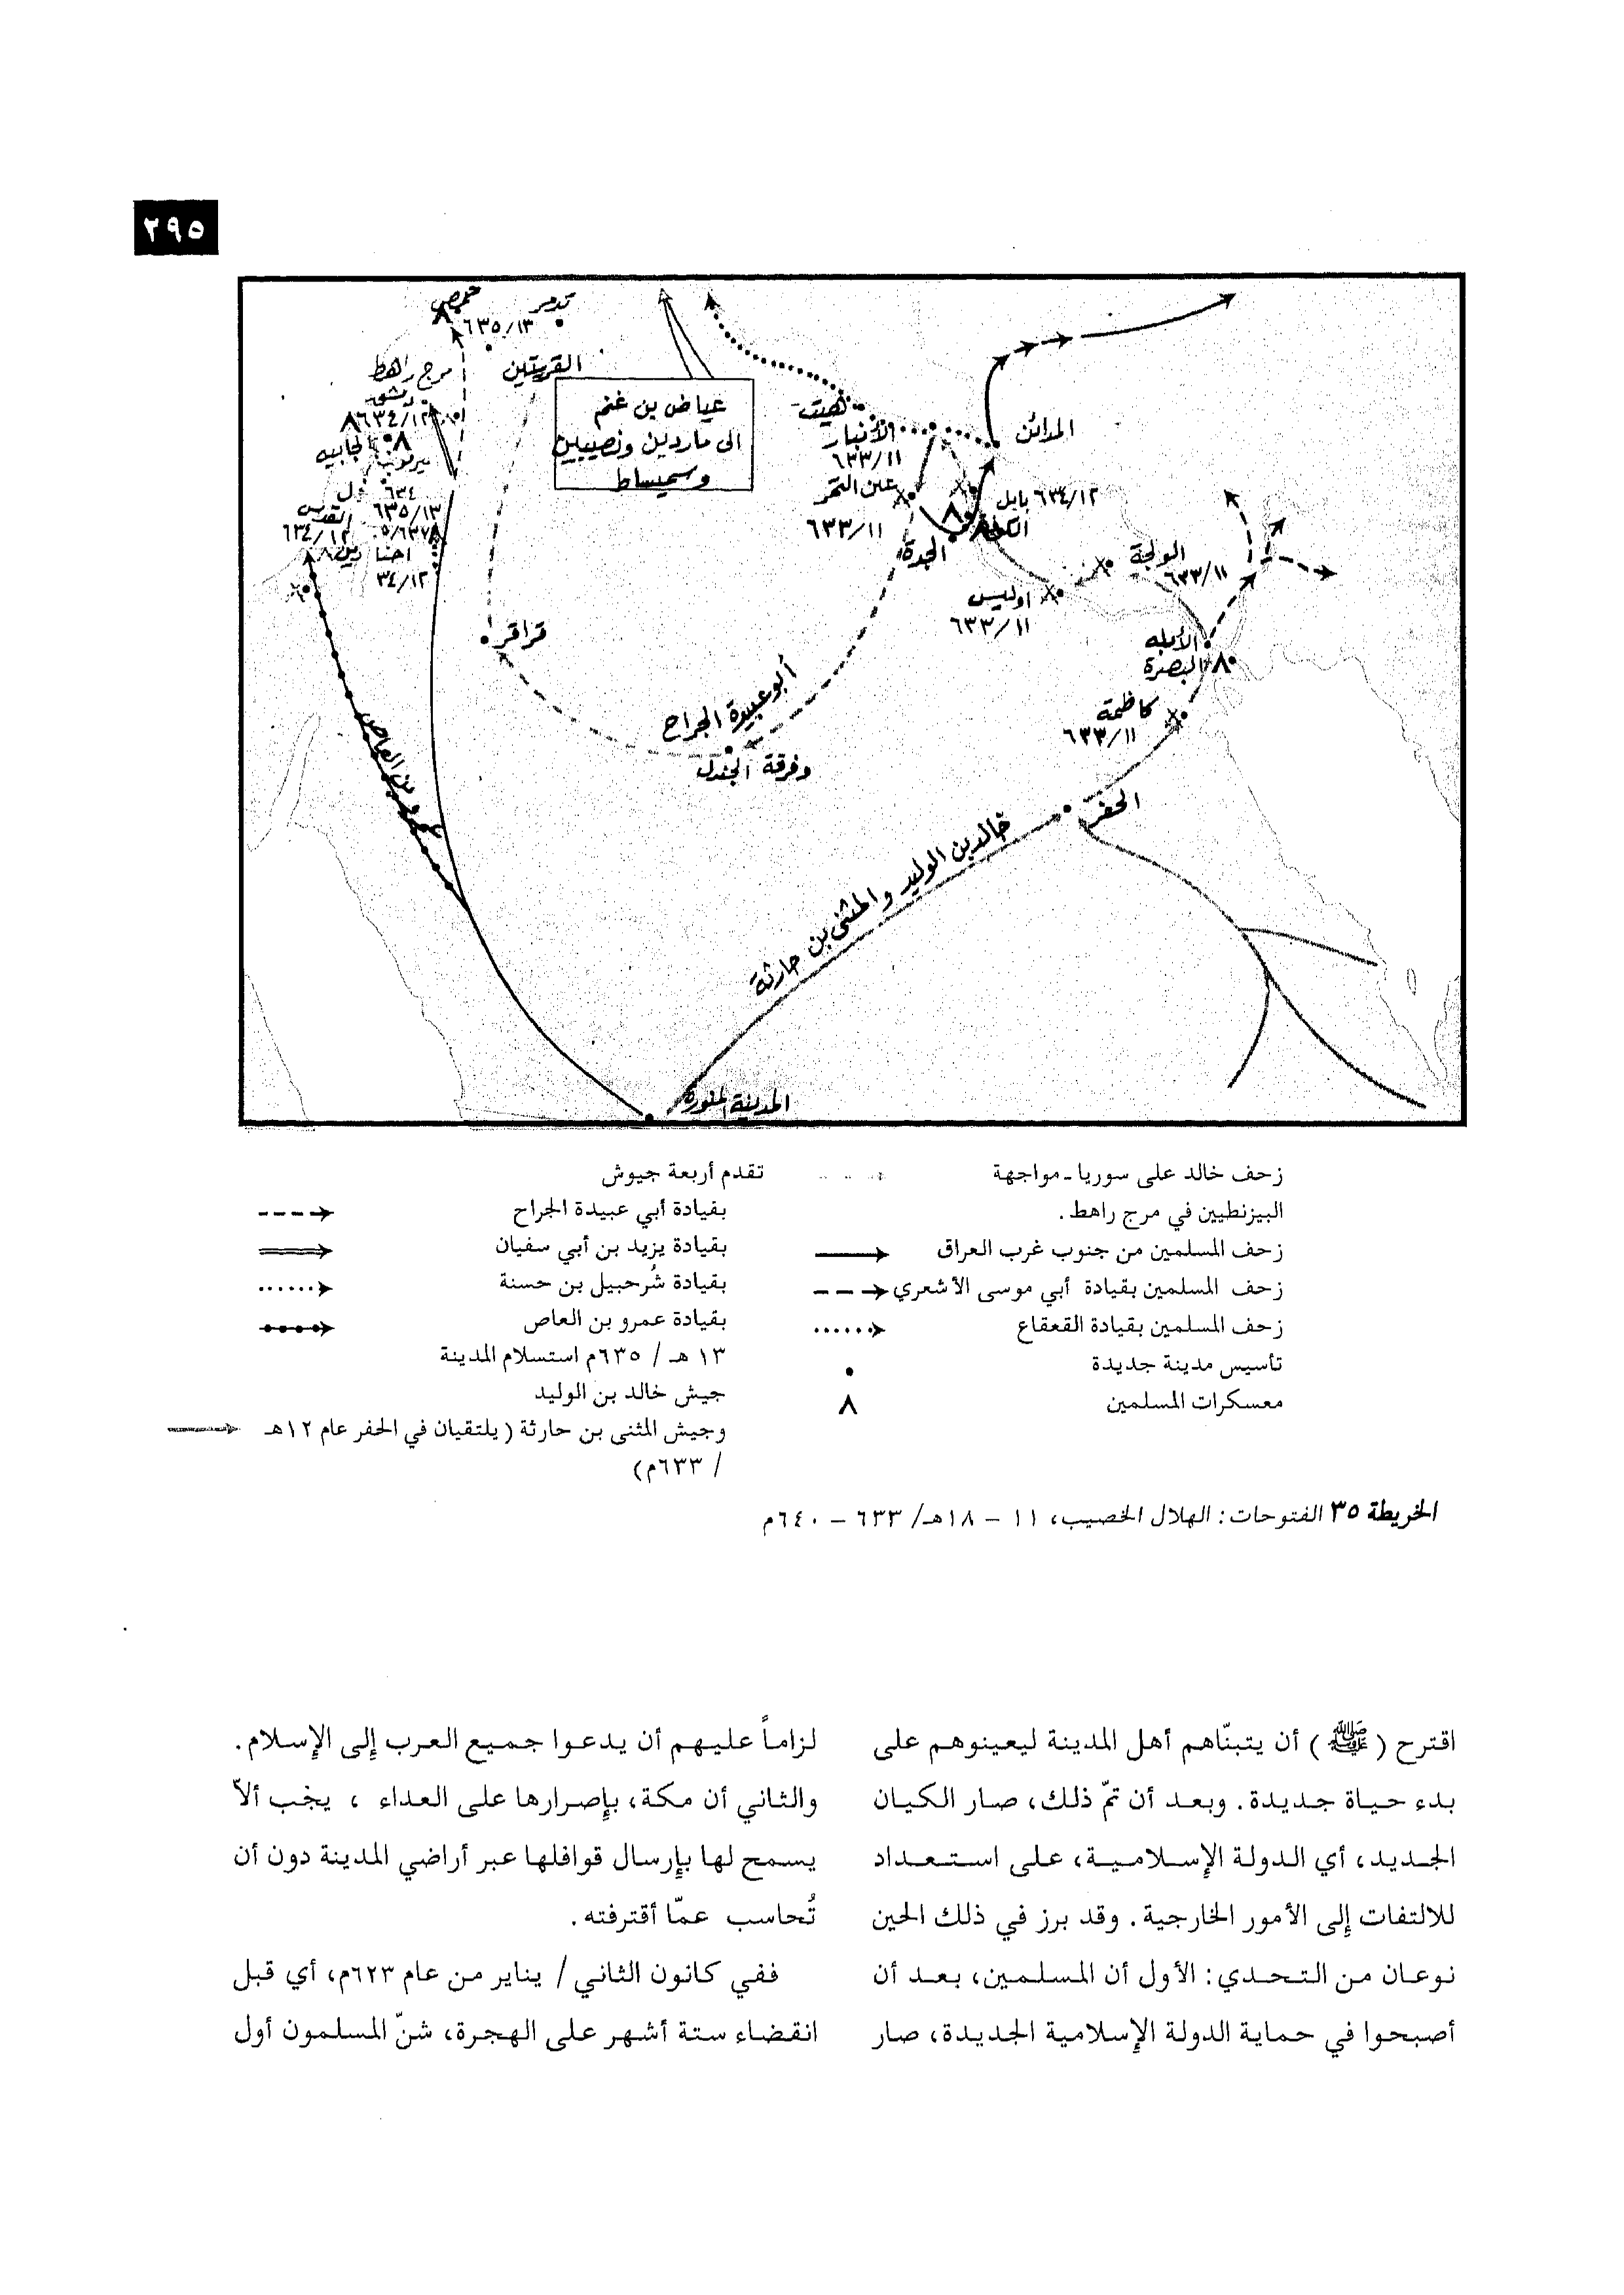 ٢٩٥
حمص
تدمر
٦٣٥/١٣
القريتين
مرج راهط
دمشق
٦٣٤/١٢
الجابيه
٦٣٤
٦٣٥/١٣
القدس
٦٣٤/١٢
٣٤/١٢
عياض بن غنم
الى ماردين ونصيبين
وسميساط
هيت
الأنبار
٦٣٣/١١
المدائن
عين التمر
٦٣٣/١١
بابل ٦٣٤/١٢
الجدة
الولجة
٦٣٣/١١
اوليس
٦٣٣/١١
الأبله
البصرة
كاظمة
٦٣٣/١١
قراقر
أبو عبيدة الجراح
الحفر
خالد بن الوليد والمثنى بن حارثة
عمرو بن العاص
المدينة المنورة
زحف خالد على سوريا ـ مواجهة
البيزنطيين في مرج راهط.
زحف المسلمين من جنوب غرب العراق
زحف المسلمين بقيادة أبي موسى الأشعري
زحف المسلمين بقيادة القعقاع
تأسيس مدينة جديدة
معسكرات المسلمين
تقدم أربعة جيوش
بقيادة أبي عبيدة الجراح
بقيادة يزيد بن أبي سفيان
بقيادة شُرحبيل بن حسنة
بقيادة عمرو بن العاص
١٣ هـ / ٦٣٥م استسلام المدينة
جيش خالد بن الوليد
وجيش المثنى بن حارثة (يلتقيان في الحفر عام ١٢هـ
/ ٦٣٣م)
الخريطة ٣٥ الفتوحات: الهلال الخصيب، ١١ – ١٨هـ/ ٦٣٣ – ٦٤٠م
اقترح (ﷺ) أن يتبنّاهم أهل المدينة ليعينوهم على
بدء حياة جديدة. وبعد أن تمّ ذلك، صار الكيان
الجديد، أي الدولة الإسلامية، على استعداد
للالتفات إلى الأمور الخارجية. وقد برز في ذلك الحين
نوعان من التحدي: الأول أن المسلمين، بعد أن
أصبحوا في حماية الدولة الإسلامية الجديدة، صار
لزاماً عليهم أن يدعوا جميع العرب إلى الإسلام.
والثاني أن مكة، بإصرارها على العداء ، يجب ألاّ
يسمح لها بإرسال قوافلها عبر أراضي المدينة دون أن
تُحاسب عمّا أقترفته.
ففي كانون الثاني/ يناير من عام ٦٢٣م، أي قبل
انقضاء ستة أشهر على الهجرة، شنّ المسلمون أول